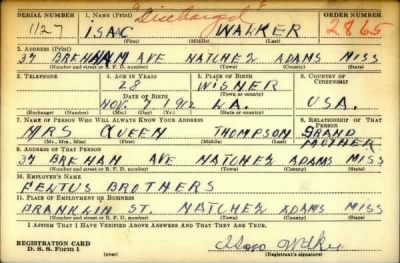 SERIAL NUMBER 1. NAME (Print) "Discharged" ORDER NUMBER
1127 ISAC WALKER 2865
(First) (Middle) (Last)
2. ADDRESS (Print)
37 BREHAM AVE NATCHEZ ADAMS MISS
(Number and street or R. F. D. number) (Town) (County) (State)
3. TELEPHONE 4. AGE IN YEARS 5. PLACE OF BIRTH 6. COUNTRY OF CITIZENSHIP
28 WISNER
DATE OF BIRTH (Town or county)
NOV. 7 1912 LA. USA.
(Exchange) (Number) (Mo.) (Day) (Yr.) (State or country)
7. NAME OF PERSON WHO WILL ALWAYS KNOW YOUR ADDRESS 8. RELATIONSHIP OF THAT PERSON
MRS QUEEN THOMPSON GRAND MOTHER
(Mr., Mrs., Miss) (First) (Middle) (Last)
9. ADDRESS OF THAT PERSON
37 BREHAM AVE NATCHEZ ADAMS MISS
(Number and street or R. F. D. number) (Town) (County) (State)
10. EMPLOYER'S NAME
FEWTUS BROTHERS
11. PLACE OF EMPLOYMENT OR BUSINESS
FRANKLIN ST. NATCHEZ ADAMS MISS
(Number and street or R. F. D. number) (Town) (County) (State)
I AFFIRM THAT I HAVE VERIFIED ABOVE ANSWERS AND THAT THEY ARE TRUE.
REGISTRATION CARD
D. S. S. Form 1 (over) (Registrant's signature)